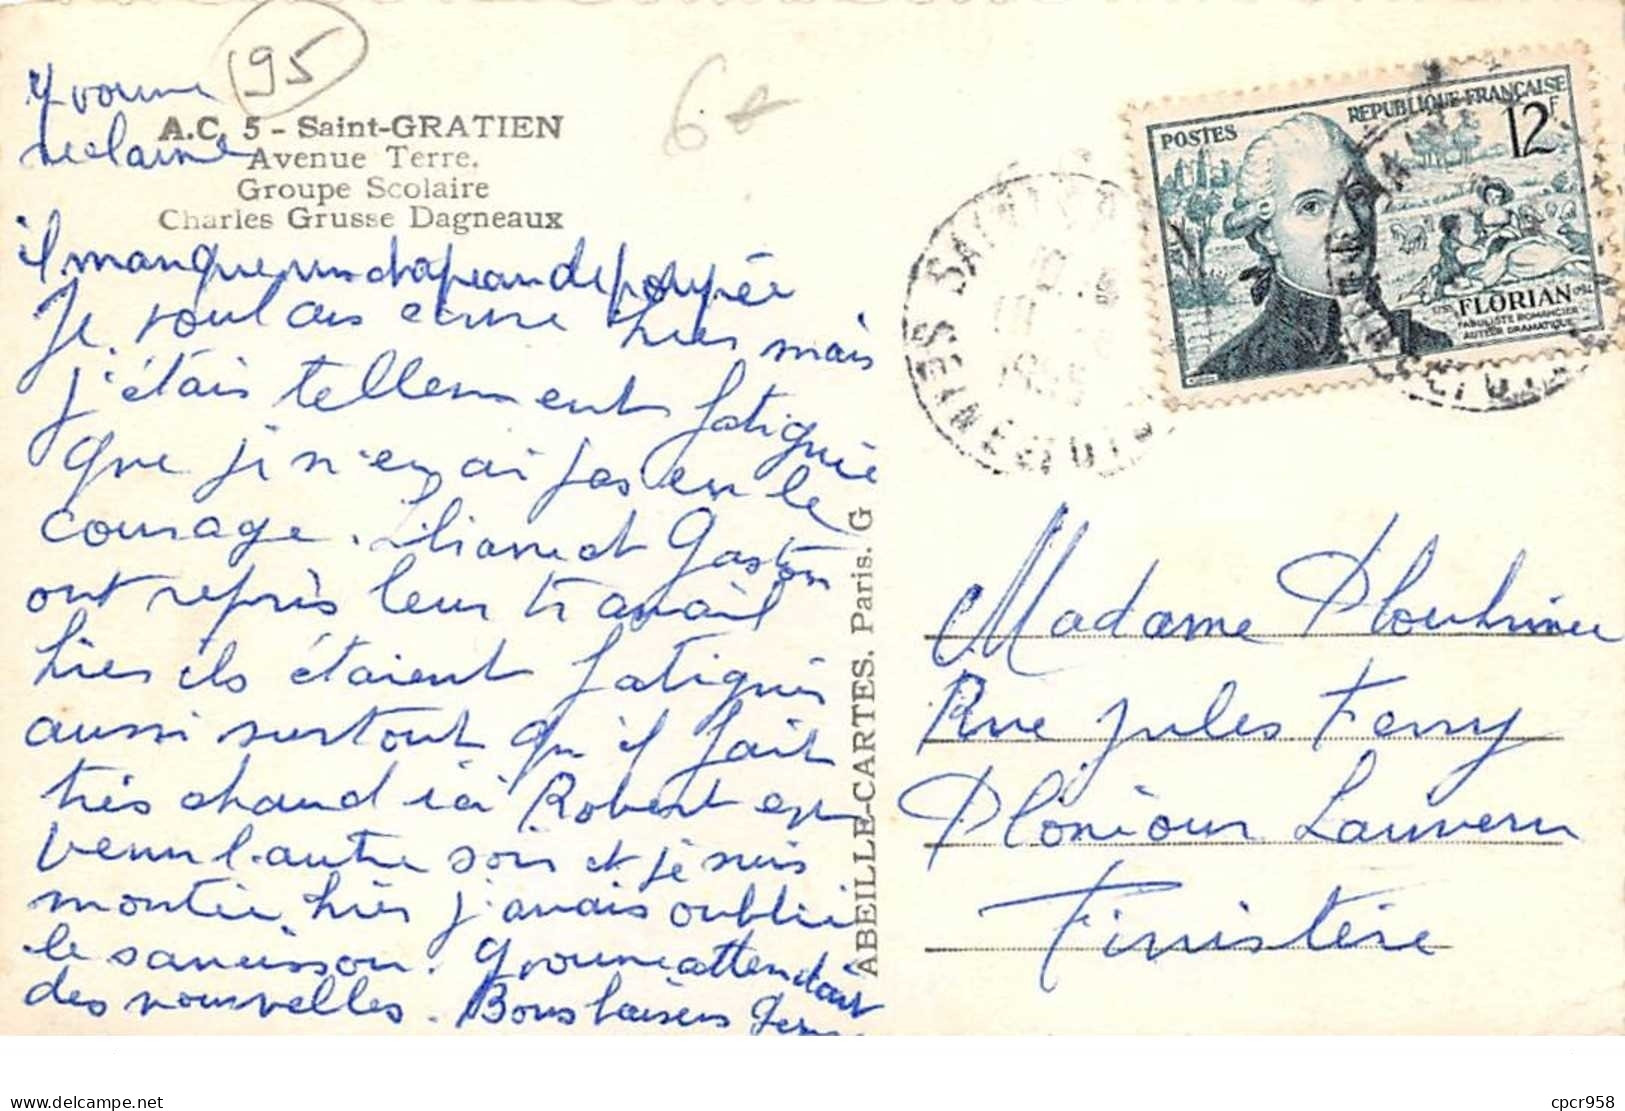 95
6€
Yvonne
A.C. 5 - Saint-GRATIEN
Avenue Terre.
Groupe Scolaire
Charles Grusse Dagneaux
il manque un chapeau de poupée
Je voulais écrire hier mais
j'étais tellement fatiguée
que j n'en ai pas eu le
courage. Liliane et Gaston
ont repris leur travail
hier ils étaient fatigués
aussi surtout qu'il fait
très chaud ici Robert est
venu l'autre soir et je suis
montée hier j'avais oublié
le saucisson. Yvonne attendait
des nouvelles. Bons baisers
ABEILLE-CARTES. Paris. G
POSTES
REPUBLIQUE FRANÇAISE
12F
FLORIAN
FABULISTE ROMANCIER
AUTEUR DRAMATIQUE
SEINE ET OISE
Madame Plouhinec
Rue Jules Ferry
Plonéour Lanvern
Finistère
cpcr958